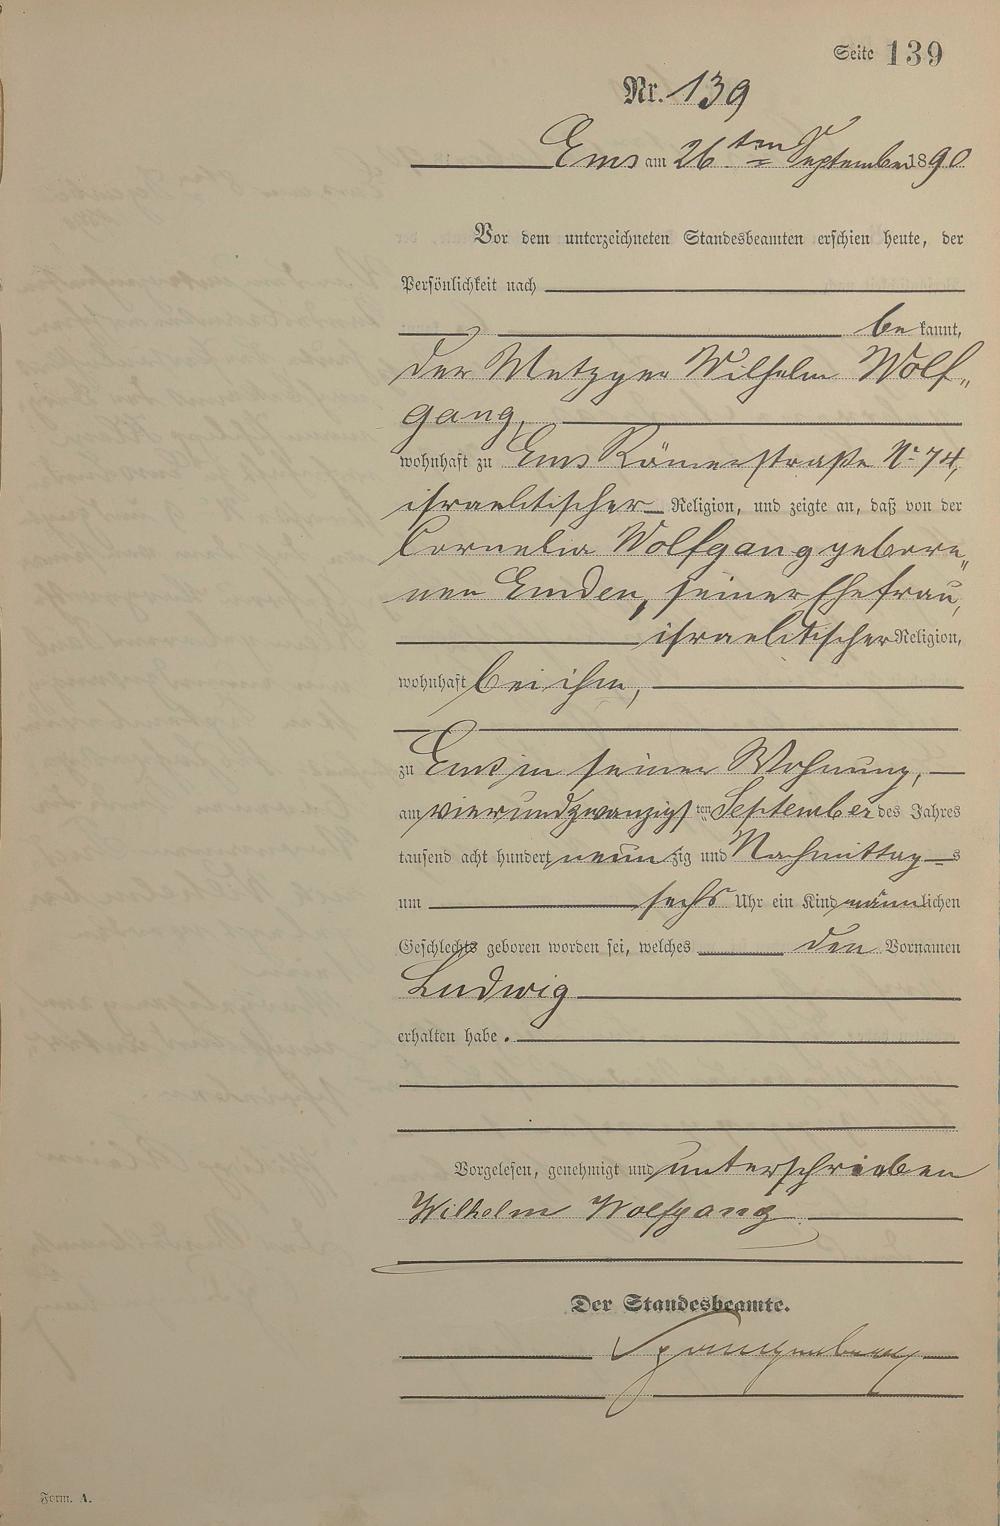 Seite 139
Nr. 139
Ems am 26ten September 1890
Vor dem unterzeichneten Standesbeamten erschien heute, der
Persönlichkeit nach
be kannt,
der Metzger Wilhelm Wolf„
gang,
wohnhaft zu Ems Römerstraße No 74,
israelitischer Religion, und zeigte an, daß von der
Cornelia Wolfgang gebore„
nen Emden, seiner Ehefrau,
israelitischer Religion,
wohnhaft bei ihm,
zu Ems in seiner Wohnung,
am vierundzwanzigsten September des Jahres
tausend acht hundert neunzig und Nachmittags
um sechs Uhr ein Kind männlichen
Geschlechts geboren worden sei, welches den Vornamen
Ludwig
erhalten habe.
Vorgelesen, genehmigt und unterschrieben
Wilhelm Wolfgang
Der Standesbeamte.
Spangenberg
Form. A.